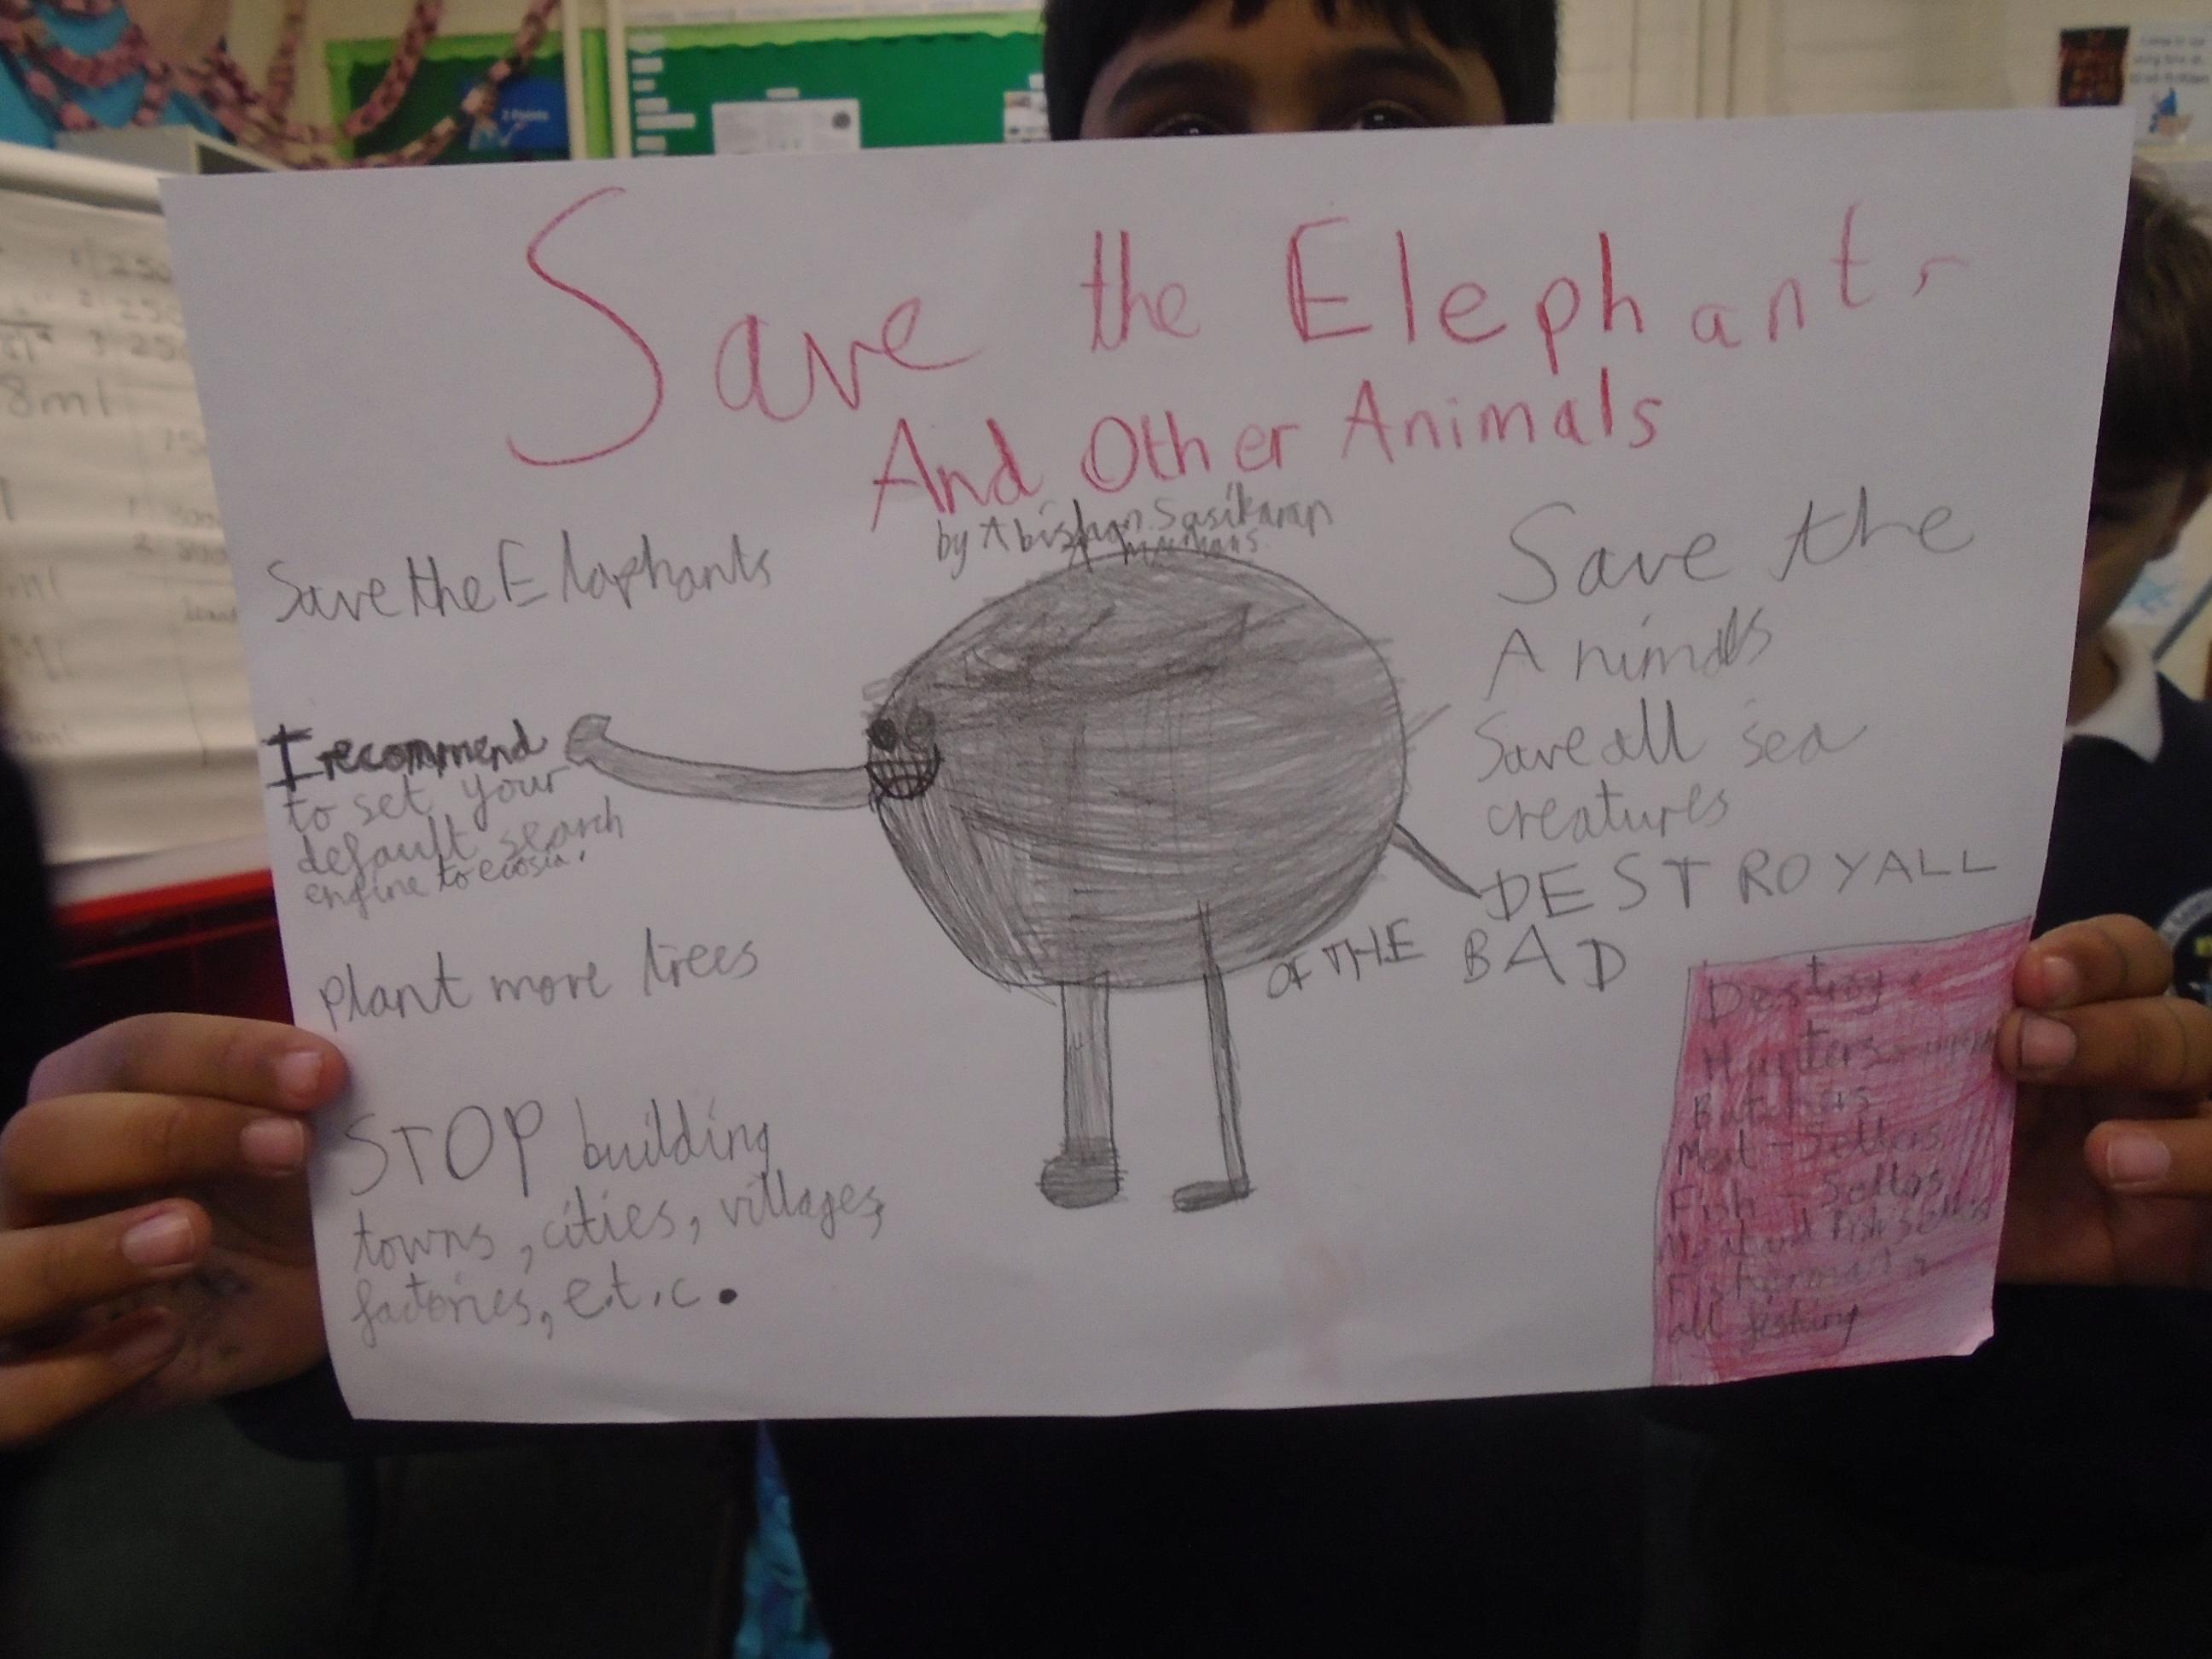 Save the Elephants
And Other Animals
by Abishan Sasikaran
Save the Elaphants
I recommend
to set your
default search
engine to ecosia.
plant more trees
STOP building
towns, cities, villages,
factories, e.t.c.
Save the
Animals
Save all sea
creatures
DESTROY ALL
OF THE BAD
Destroy:
Hunters
Butchers
Meat-Sellers
Fish-Sellas
Meat and fish sellers
all fishing
2 Points
250
2 250
3 250
8ml